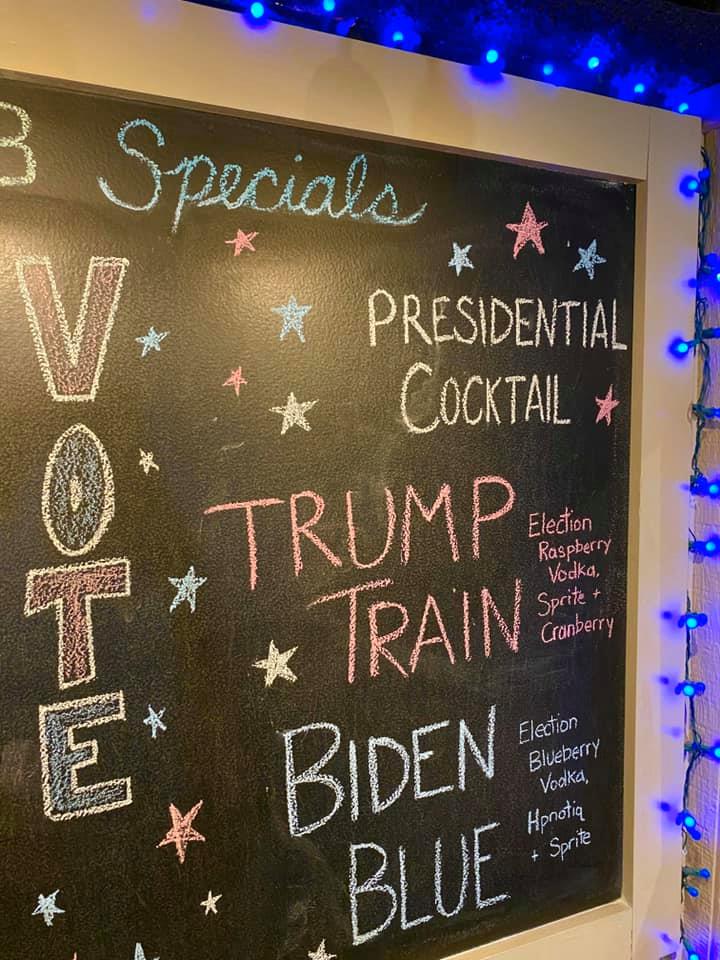 3 Specials
VOTE
PRESIDENTIAL
COCKTAIL
TRUMP
TRAIN
Election
Raspberry
Vodka,
Sprite +
Cranberry
BIDEN
BLUE
Election
Blueberry
Vodka,
Hpnotiq
+ Sprite